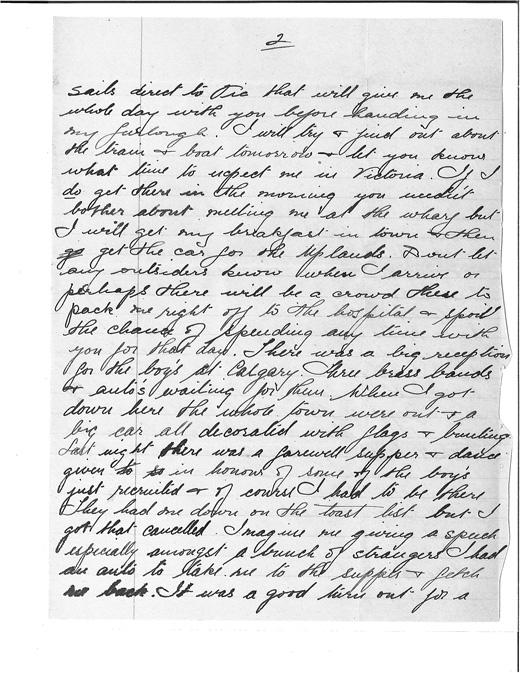 2
sails direct to Vic that will give me the
whole day with you before handing in
my furlough. I will try & find out about
the train & boat tomorrow & let you know
what time to expect me in Victoria. If I
do get there in the morning you needn't
bother about meeting me at the wharf but
I will get my breakfast in town & then
get the car for the Uplands. Dont let
any outsiders know when I arrive or
perhaps there will be a crowd there to
pack me right off to the hospital & spoil
the chance of spending any time with
you for that day. There was a big reception
for the boys at Calgary. Three brass bands
& auto's waiting for them. When I got
down here the whole town were out & a
big car all decorated with flags & bunting
Last night there was a farewell supper & dance
given in honour of some of the boy's
just recruited & of course I had to be there
They had me down on the toast list but I
got that cancelled. Imagine me giving a speech
especially amongst a bunch of strangers I had
an auto to take me to the supper & fetch
me back. It was a good turn out for a